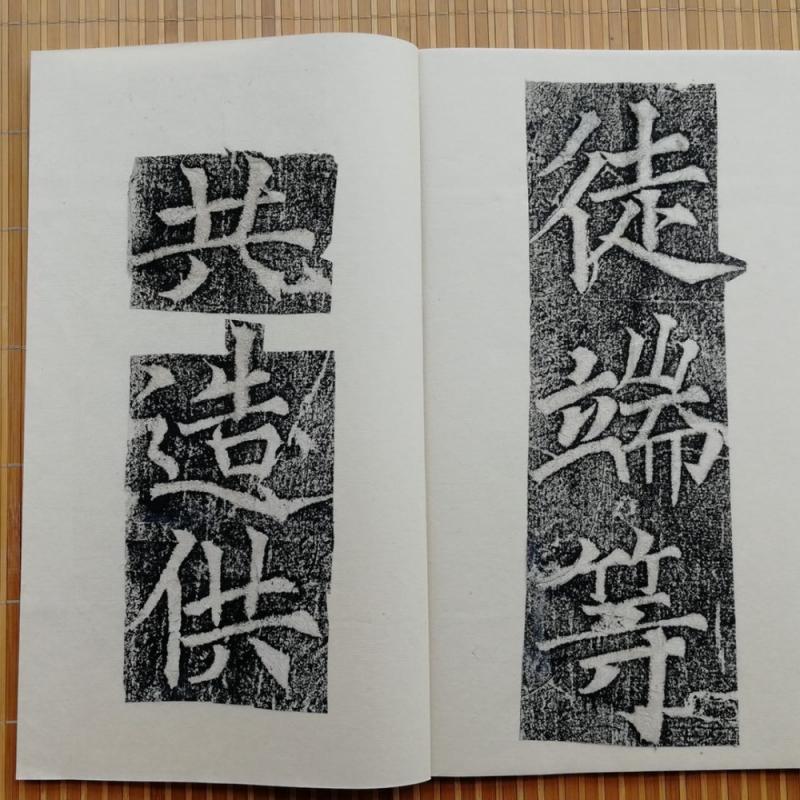 徒端等
共造供